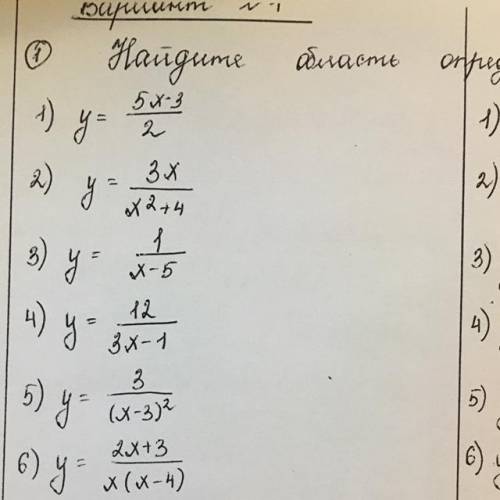 Вариант №1
① Найдите область опред
1) y = \frac{5x-3}{2}
2) y = \frac{3x}{x^2+4}
3) y = \frac{1}{x-5}
4) y = \frac{12}{3x-1}
5) y = \frac{3}{(x-3)^2}
6) y = \frac{2x+3}{x(x-4)}
1)
2)
3)
4)
5)
6)